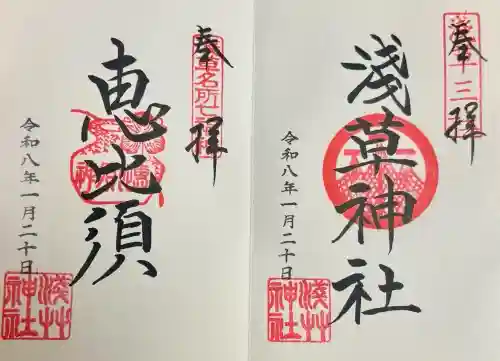 奉拝
浅草神社
令和八年一月二十日
浅草神社
奉拝
恵比須
令和八年一月二十日
浅草神社